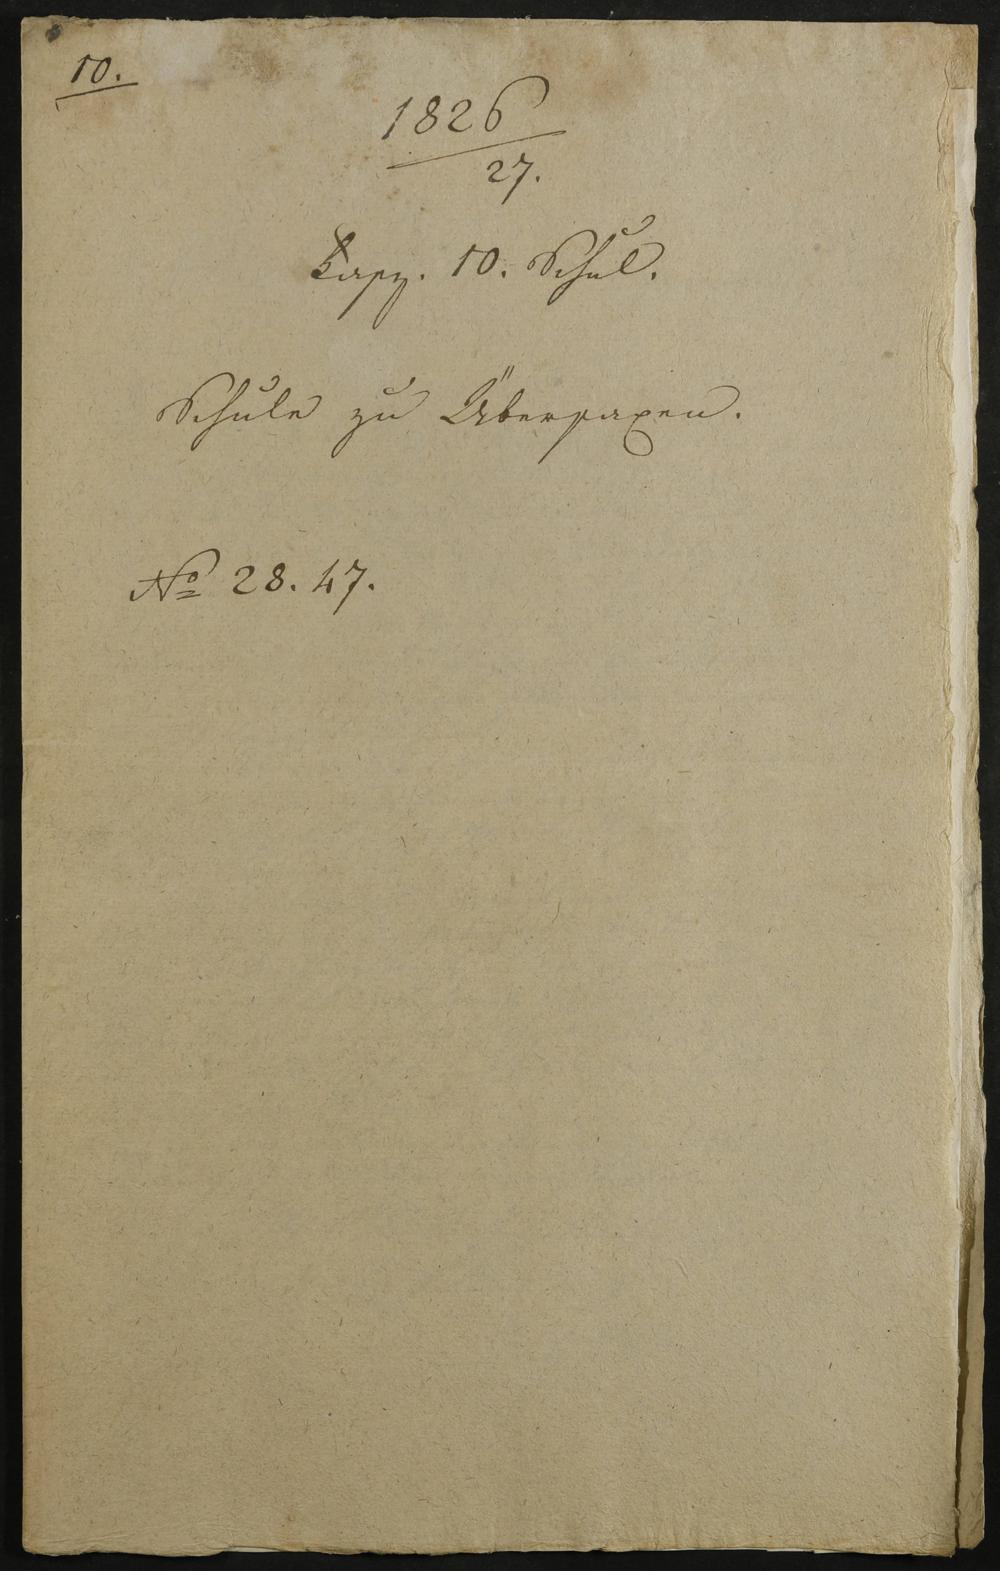 10.
1826
27.
Fasz. 10. Schul.
Schule zu Übersaxen.
No 28. 47.